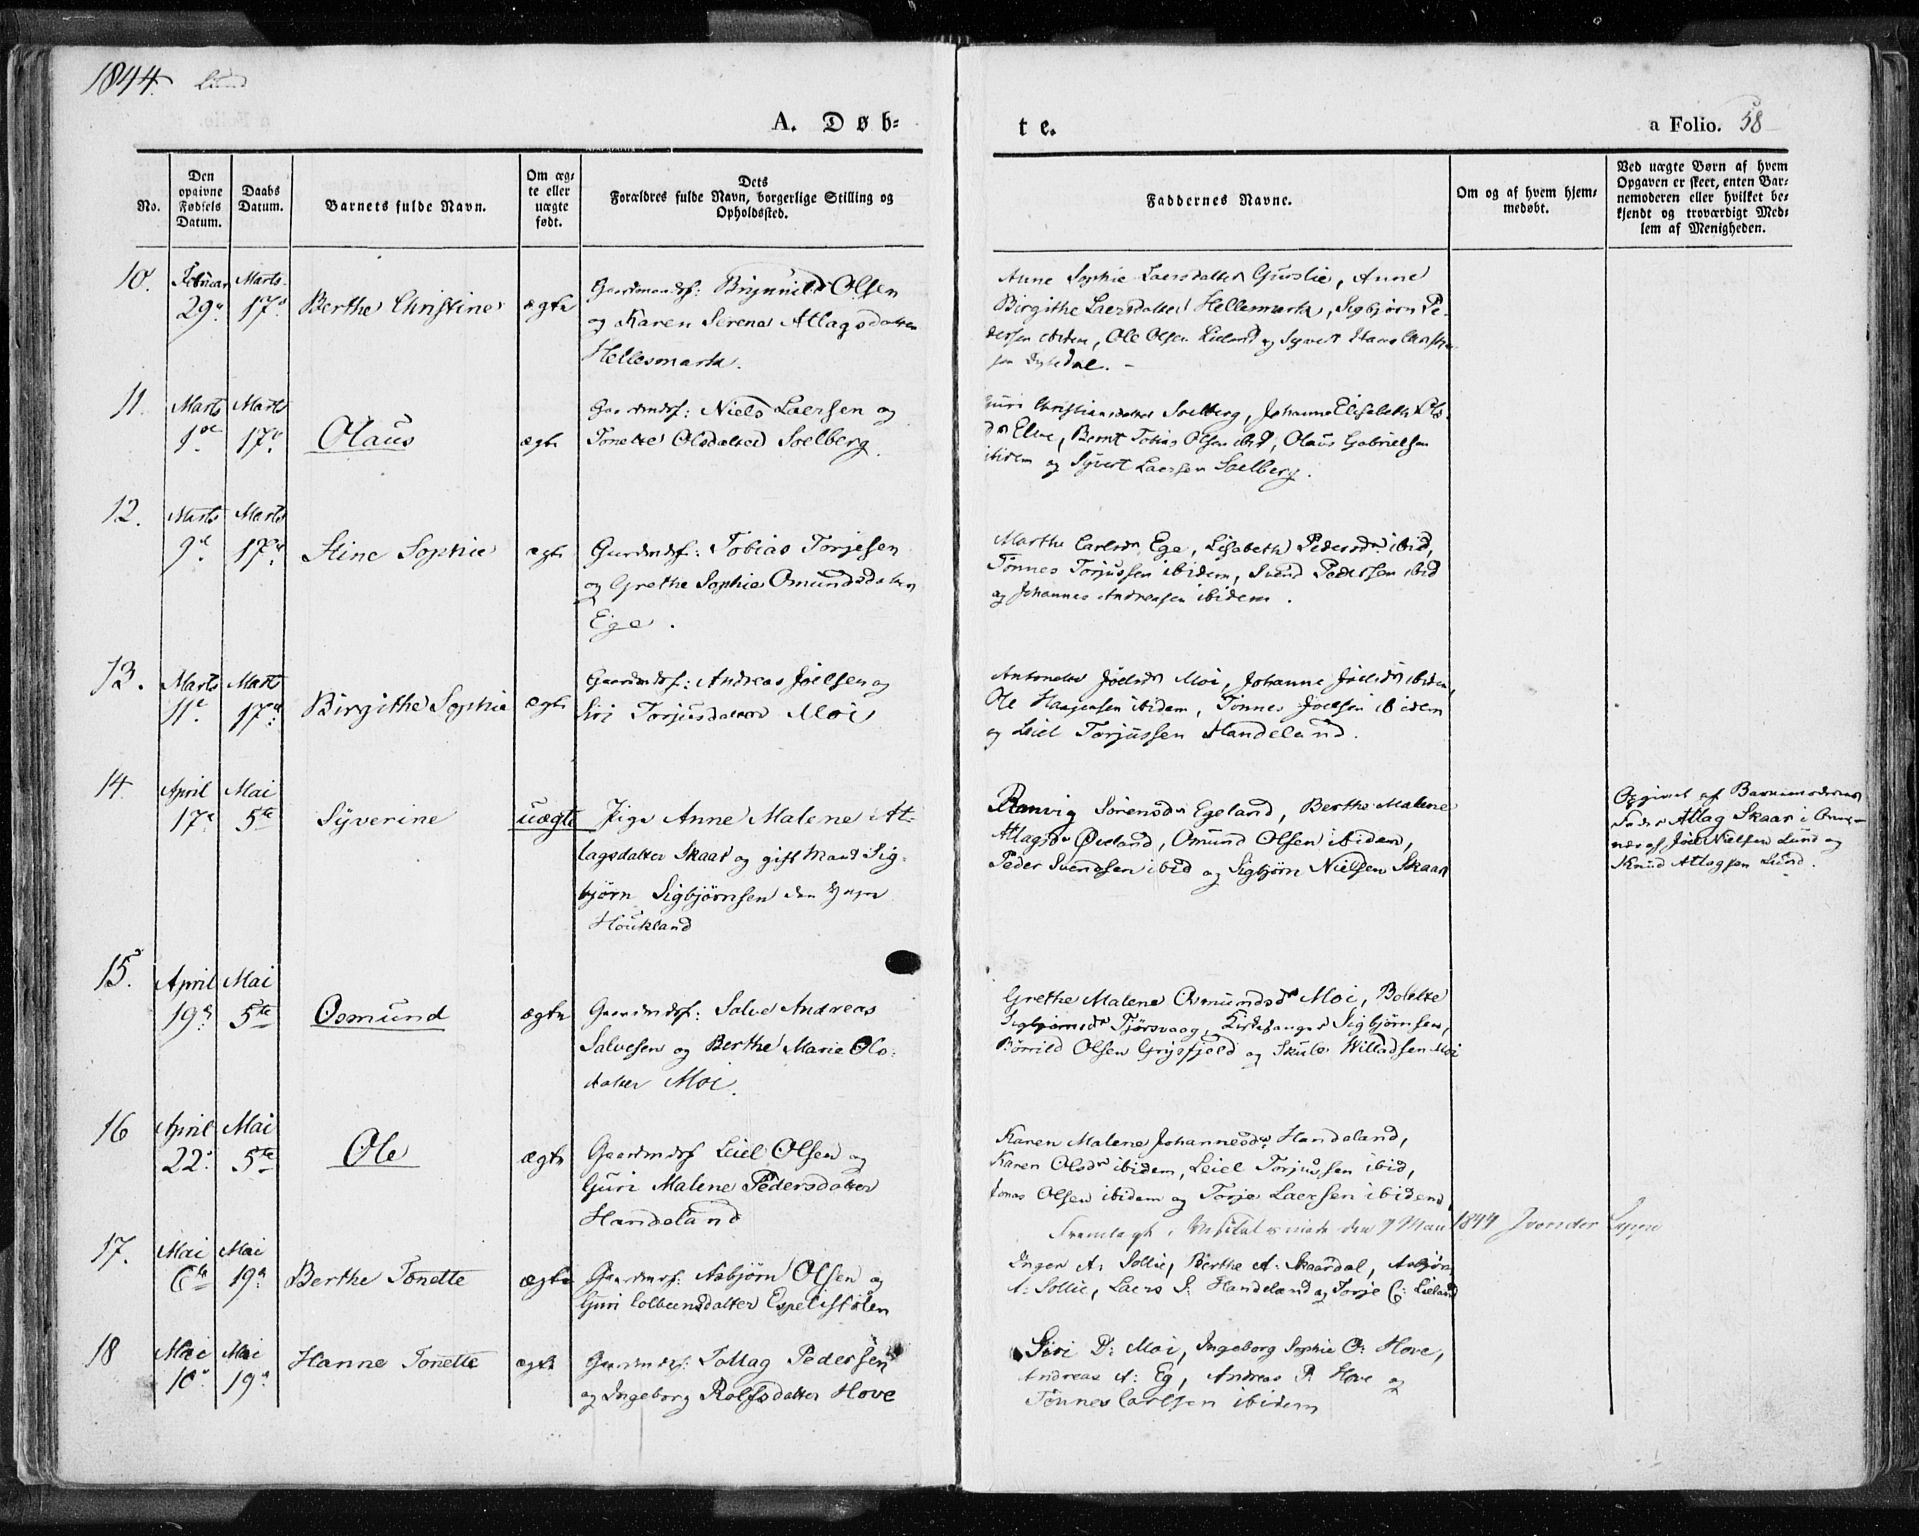 1844. Lund
A. Døb-
te.
a Folio. 58
No.
Den
opgivne
Fødsels
Datum.
Daabs
Datum.
Barnets fulde Navn.
Om æg-
te eller
uægte
født.
Dets
Forældres fulde Navn, borgerlige Stilling og
Opholdssted.
Faddernes Navne.
Om og af hvem hjem-
medøbt.
Ved uægte Børn af hvem
Opgaven er skeet, enten Bar-
nemoderen eller hvilket be-
kjendt og troværdigt Med-
lem af Menigheden.
10. Februar 29 Marts 17 Berthe Christine ægte
Gaardmandsf: Olsen
og Karen Serene Atlagsdatter
Hellesmark.
Anne Sophie Laersdatter Gurslie, Anne
Birgithe Laersdatter Hellesmark, Sigbjørn Pe-
dersen ibidem, Ole Olsen Lieland og Syvert Hans
11. Marts 1 Marts 17 Olaus ægte
Gaardmdsf: Niels Laersen og
Tonette Olsdatter Soelberg.
Guri Christiansdatter Soelberg, Johanne Elisabeth Ols-
dr Elve, Bernt Tobias Olsen ibid, Olaus Gabrielsen
ibidem og Syvert Laersen Soelberg.
12. Marts 9 Marts 17 Stine Sophie ægte
Gardmdsf: Tobias Torjesen
og Grethe Sophie Omundsdatter
Ege.
Marthe Carlsdr Ege, Lisabeth Pedersdr ibid,
Tønnes Torjussen ibidem, Svend Pedersen ibid
og Johannes Andreasen ibidem.
13. Marts 11 Marts 17 Birgithe Sophie ægte
Gaardmdsf: Andreas Joelsen og
Siri Torjusdatter Moi
Antonette Joelsdr Moi, Johanne Joelsdr ibidem,
Ole Haagensen ibidem, Tønnes Joelsen ibidem
og Leiel Torjussen Handeland.
14. April 17 Mai 5te Syverine uægte
Pige Anne Malene At-
lagsdatter Skaar og gift Mand Sig-
bjørn Sigbjørnsen den yngre
Houkland
Ranvig Sørensdr Egeland, Berthe Malene
Atlagsdr Øieland, Omund Olsen ibidem,
Peder Svendsen ibid og Sigbjørn Nielsen Skaar
Opgivet af Barnemoderens
Fader Atlag Skaar i
af Joel Nielsen Lund og
Knud Atlagsen Lund.
15. April 19 Mai 5te Osmund ægte
Gaardmdsf: Salve Andreas
Salvesen og Berthe Marie Ols-
datter Moi.
Grethe Malene Osmundsdr Moi, Bolette
Sigbjørnsdr Tjørsvaag, Kirkesanger Sigbjørnsen,
Børrild Olsen Grøsfjeld og Skule Willadsen Moi
16 April 22 Mai 5te Ole ægte
Gaardmdsf Leiel Olsen og
Guri Malene Pedersdatter
Handeland
Karen Malene Johannesdr Handeland,
Karen Olsdr ibidem, Leiel Torjussen ibid,
Jonas Olsen ibidem og Torje Laersen ibidem
den 9 Mai 1844
17. Mai 6te Mai 19 Berthe Tonette ægte
Gaardmdsf: Asbjørn Olsen og
Guri Colbeensdatter Espetistølen
Inger A: Sollie, Berthe A: Skaardal, Asbjørn
A: Sollie, Laers S: Handeland og Torje C: Lieland
18 Mai 10 Mai 19 Hanne Tonette ægte
Gaardmdsf: Tollag Pedersen
og Ingeborg Rolfsdatter Hove
Siri D: Moi, Ingeborg Sophie O: Hove,
Andreas A: Eg, Andreas P. Hove og
Tønnes Carlsen ibidem